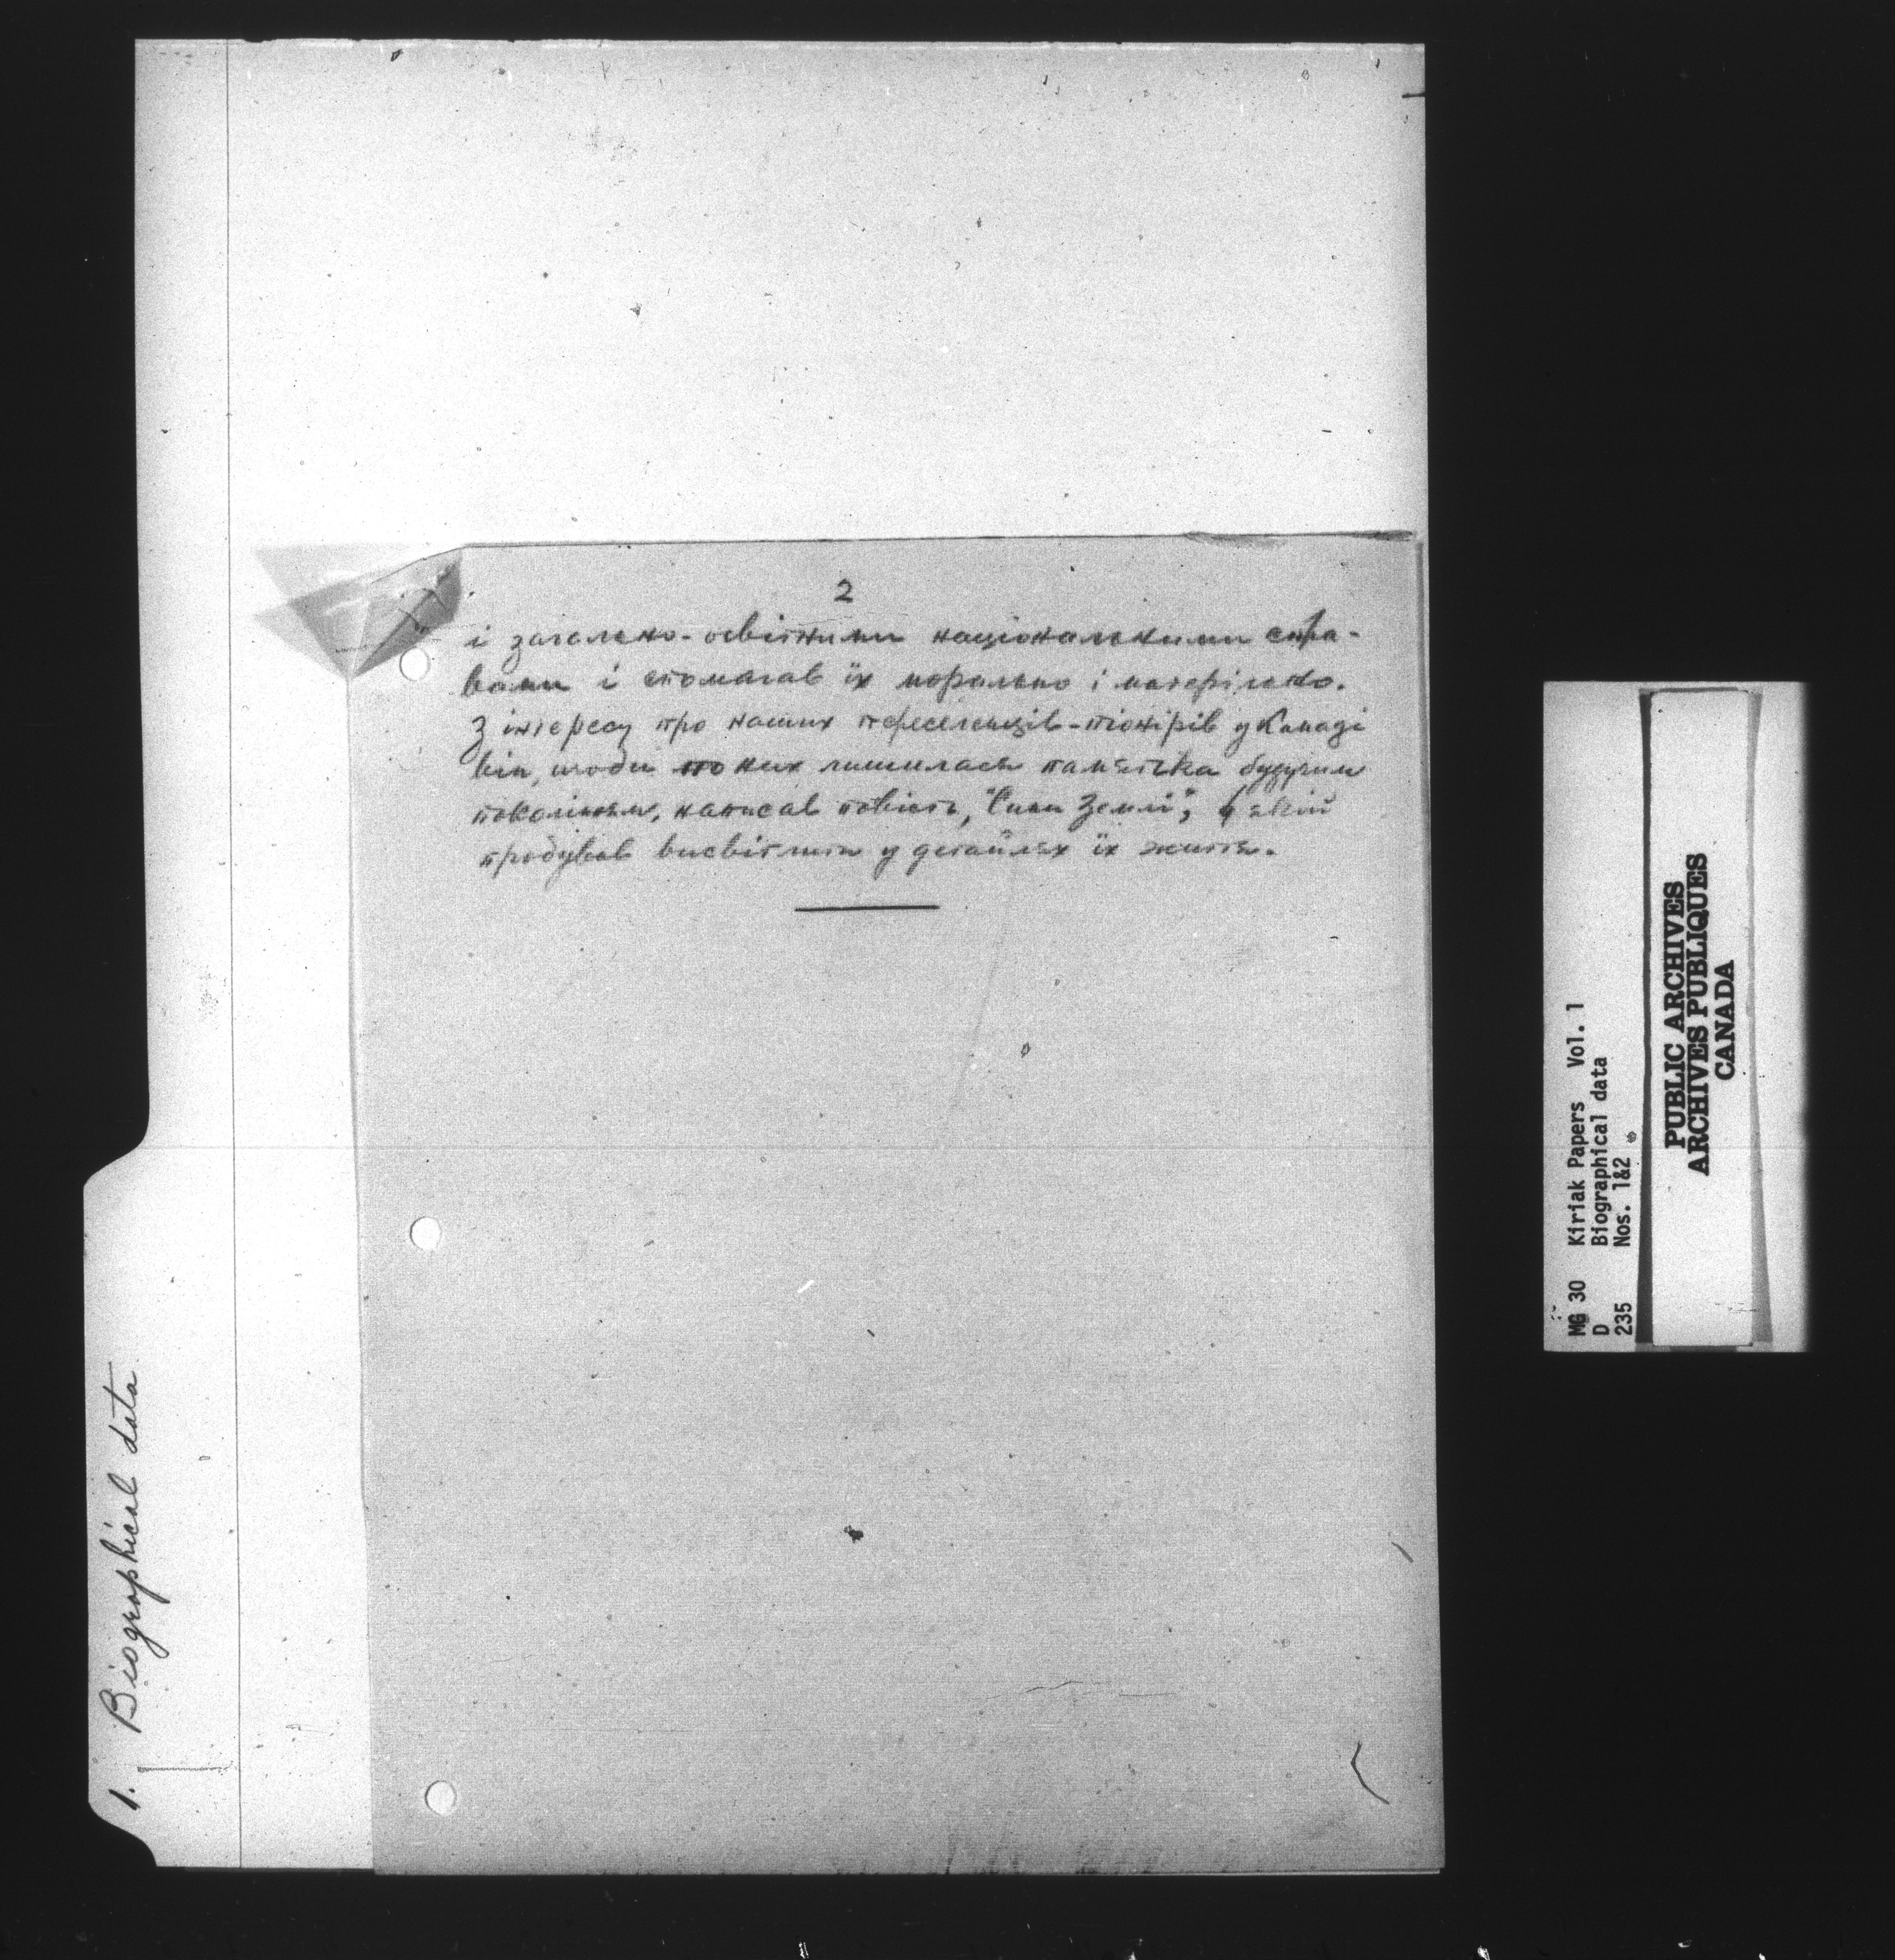 2
і загально-освітними національними спра-
вами і спомагав їх морально і матеріяльно.
З інтересу про наших переселенців-піонірів у Канаді
він, щоби по них лишилась памятка будучим
поколінням, написав повість, "Сини Землі", у якій
пробував висвітлити у детайлях їх життя.
1. Biographical data
MG 30 Kiriak Papers Vol. 1
D Biographical data
235 Nos. 1&2
PUBLIC ARCHIVES
ARCHIVES PUBLIQUES
CANADA